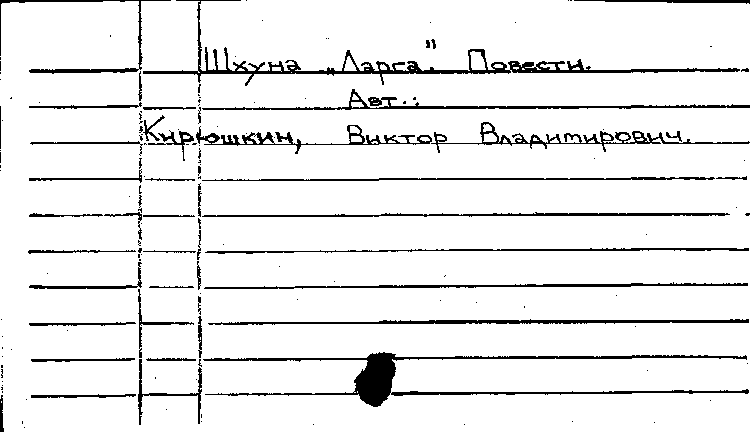 Шхуна „Ларга". Повести.
Авт.:
Кирюшкин, Виктор Владимирович.